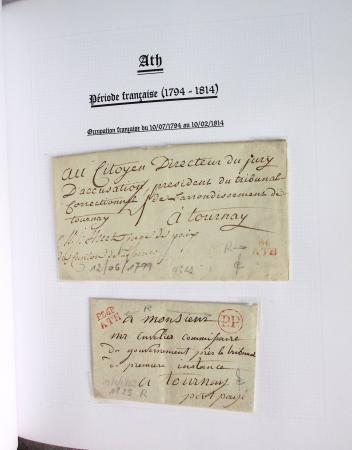 Ath
Période française (1794 - 1814)
Occupation française du 10/07/1794 au 10/02/1814
au Citoyen Directeur du jury
D'accusation, president du tribunal
Correctionnel de l'arrondissement de
tournay
à tournay
juge de paix
12/06/1799
R
86
ATH
P86P
ATH
R
P.P
a monsieur
mr commissaire
du gouvernement près le tribunal
de premiere instance
a tournay
port payé